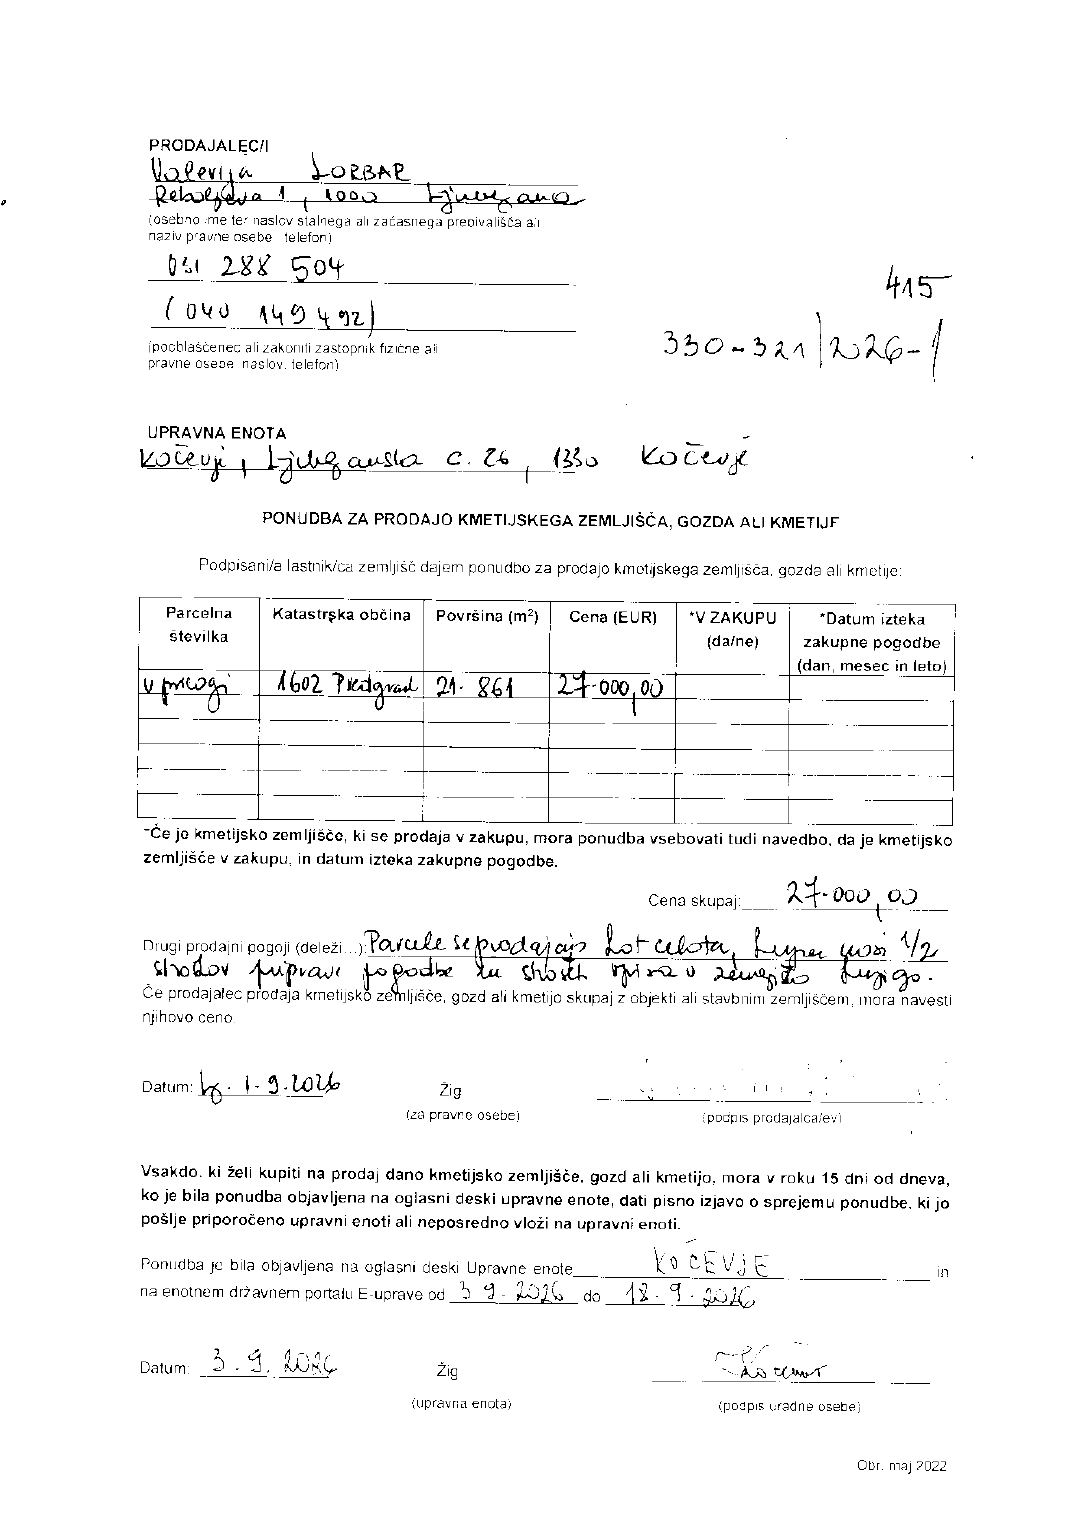 PRODAJALEC/I
Valerija LORBAR
1, 1000 Ljubljana
(osebno ime ter naslov stalnega ali začasnega prebivališča ali
naziv pravne osebe telefon)
031 288 504
(040 149 492)
415
(pooblaščenec ali zakoniti zastopnik fizične ali
pravne osebe naslov, telefon)
330-321/2026-1
UPRAVNA ENOTA
Kočevje, Ljubljanska c. 26, 1330 Kočevje
PONUDBA ZA PRODAJO KMETIJSKEGA ZEMLJIŠČA, GOZDA ALI KMETIJE
Podpisani/a lastnik/ca zemljišč dajem ponudbo za prodajo kmetijskega zemljišča, gozda ali kmetije:
Parcelna številka Katastrska občina Površina (m²) Cena (EUR) *V ZAKUPU (da/ne) *Datum izteka zakupne pogodbe (dan, mesec in leto)
v prilogi 1602 Predgrad 21.861 27.000,00
*Če je kmetijsko zemljišče, ki se prodaja v zakupu, mora ponudba vsebovati tudi navedbo, da je kmetijsko
zemljišče v zakupu, in datum izteka zakupne pogodbe.
Cena skupaj: 27.000,00
Drugi prodajni pogoji (deleži...): Parcele se prodajajo kot celota, kupec nosi 1/2
stroškov priprave pogodbe in strošek vpisa v zemljiško knjigo.
Če prodajalec prodaja kmetijsko zemljišče, gozd ali kmetijo skupaj z objekti ali stavbnim zemljiščem, mora navesti
njihovo ceno.
Datum: Lj. 1.9.2026 Žig
(za pravne osebe) (podpis prodajalca/ev)
Vsakdo, ki želi kupiti na prodaj dano kmetijsko zemljišče, gozd ali kmetijo, mora v roku 15 dni od dneva,
ko je bila ponudba objavljena na oglasni deski upravne enote, dati pisno izjavo o sprejemu ponudbe, ki jo
pošlje priporočeno upravni enoti ali neposredno vloži na upravni enoti.
Ponudba je bila objavljena na oglasni deski Upravne enote KOČEVJE in
na enotnem državnem portalu E-uprave od 3.9.2026 do 18.9.2026
Datum: 3.9.2026 Žig
(upravna enota) (podpis uradne osebe)
Obr. maj 2022